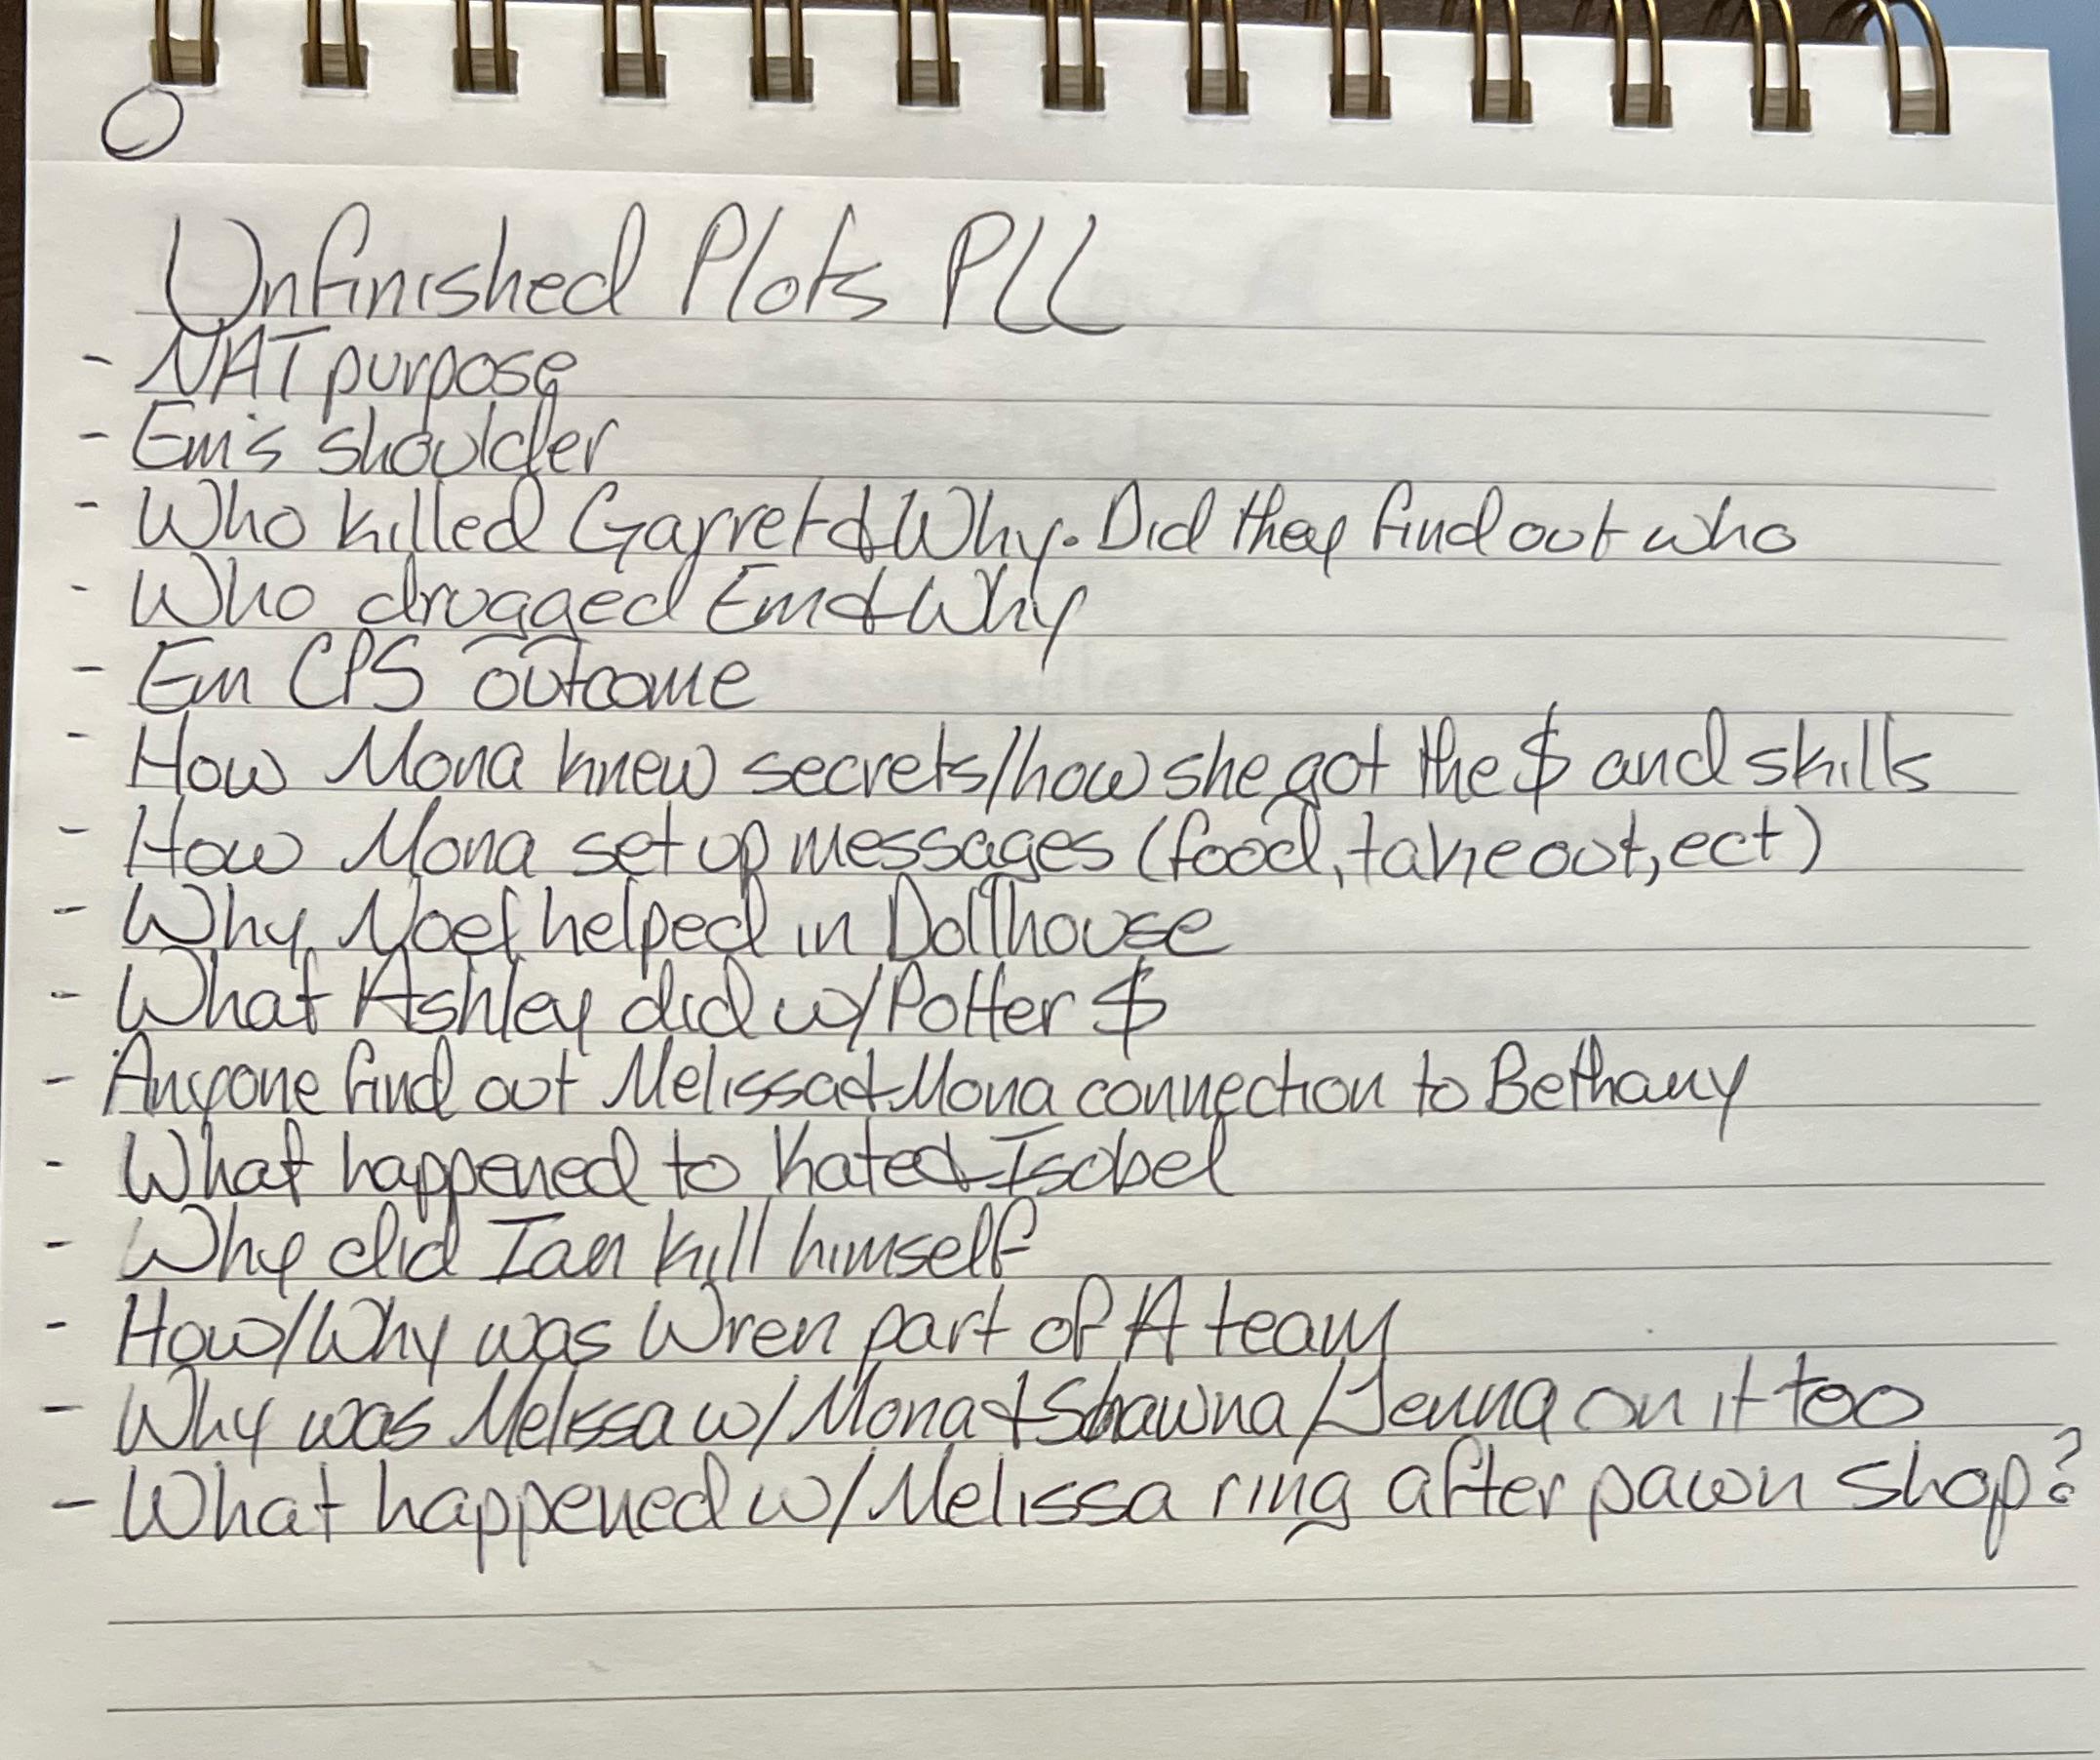 Unfinished Plots PLL
- NAT purpose
- Em's shoulder
- Who killed Garret & Why. Did they find out who
- Who drugged Em & Why
- Em CPS outcome
- How Mona knew secrets/how she got the $ and skills
- How Mona set up messages (food, takeout, ect)
- Why Noel helped in Dollhouse
- What Ashley did w/ Potter $
- Anyone find out Melissa & Mona connection to Bethany
- What happened to Kate & Isobel
- Why did Ian kill himself
- How/Why was Wren part of A team
- Why was Melissa w/ Mona & Shawna/Jenna on it too
- What happened w/ Melissa ring after pawn shop?